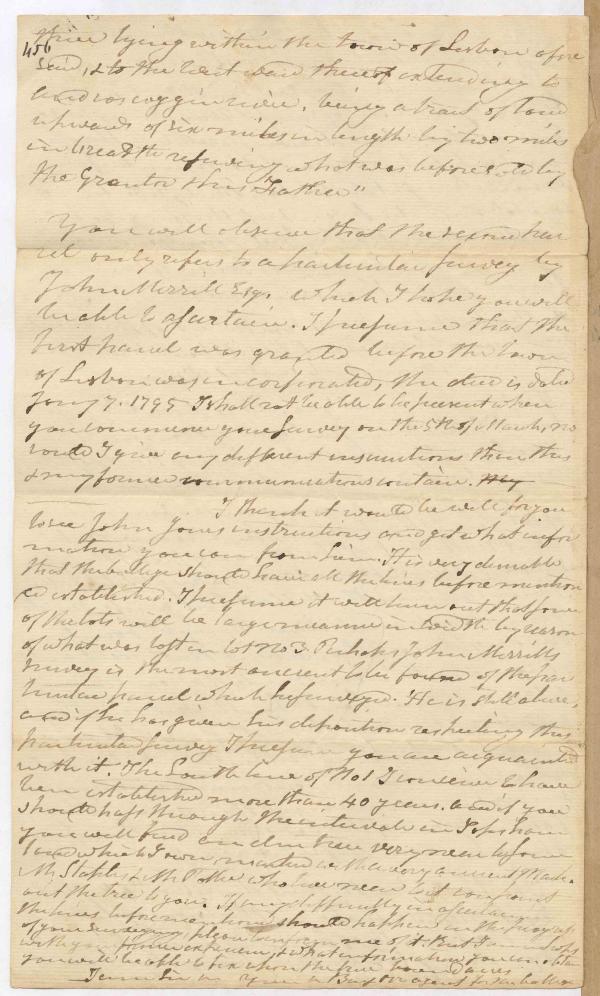 456
lying within the town of Lisbon afore
said, & to the West ward thereof extending to
Androscoggin river, being a tract of land
upwards of six miles in length by two miles
in breadth refering what was before sold by
the Grantor this Father"
You will observe that the second par
cel only refers to a particular survey by
John Merrill Esqr. which I hope you will
be able to asurtain. I presume that the
first parcel was granted before the town
of Lisbon was incorporated, the deed is dated
Jany 7. 1795 I shall not be able to be present when
you commence your survey on the 5th of March, nor
could I give any different instructions than this
& my former communications contain.
I think it would be well for you
to see John Jones instructions and get what infor
mation you can from him. It is very desirable
that the should have all the lines before mention
ed established. I presume it will turn out that some
of the lots will be large measure in width by reason
of what was lost in lot No 3. Perhaps John Merrill's
survey is the most ancient to be found of the par
ticular parcel which he surveyed. He is still alive,
and if he has given his deposition respecting this
particular survey I presume you are acquainted
with it. The South line of No 1 I conceive to have
been established more than 40 years. and if you
should pass through the intervale in Topsham
you will find an elm tree very near before
land which I own, marked as the very ancient mark.
Mr Staples & Mr who live near it can point
out the tree to you. If any difficulty in ascertaining
the lines before mentioned should happen in the progress
of your surveying, please inform me of it. But I am in hopes
with your former experience, & what information you can obtain
you will be able to fix upon the true boundaries
I am Sir